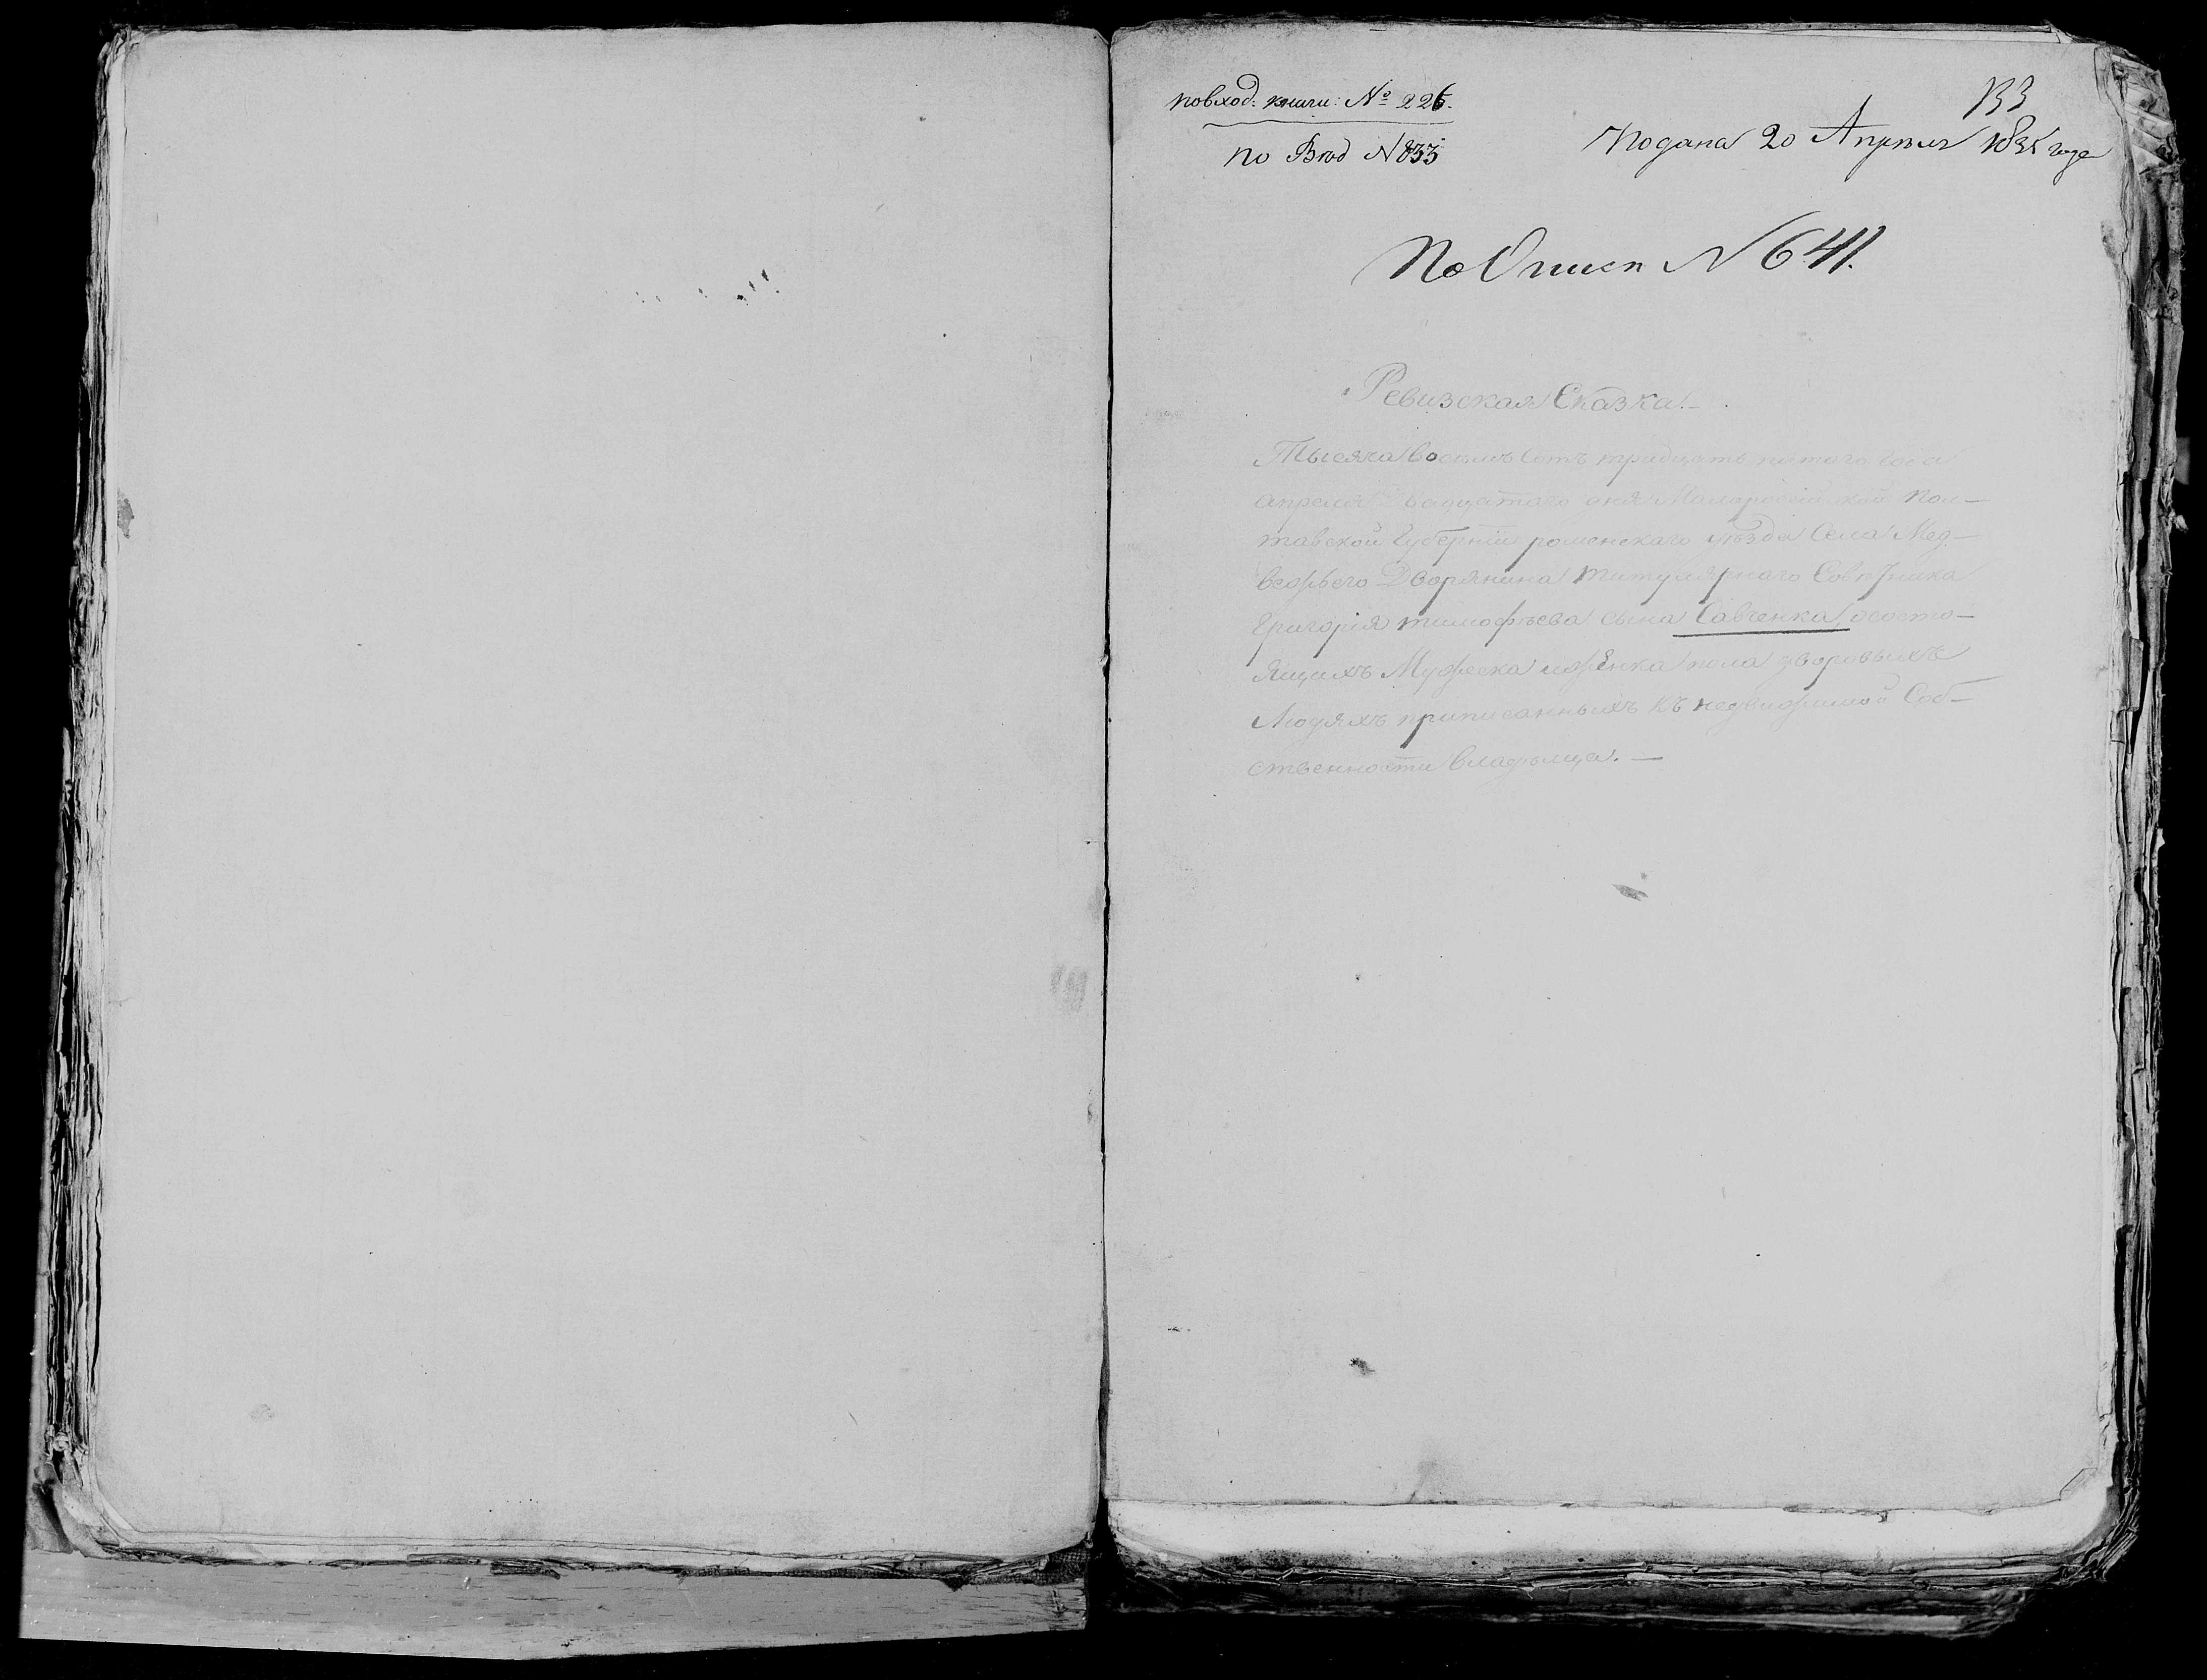 повход: книги: № 226.
по Вход N 833
133
Подана 20 Апреля 1835 года
По Описи N 641.
Ревизская Сказка.—
Тысяча восемь Сотъ тридцать пятого Года
апреля Двадцатого дня Малоросійской Пол–
тавской Губерніи роменскаго уѣзда Села Мед–
вежьего Дворянина титулярнаго Совѣтника
Григорія тимофѣева сына Савченка, ососто–
ящихъ Мужеска иженка пола дворовыхъ
Людяхъ приписанныхъ къ недвижимой Соб–
ственности владѣльца.—